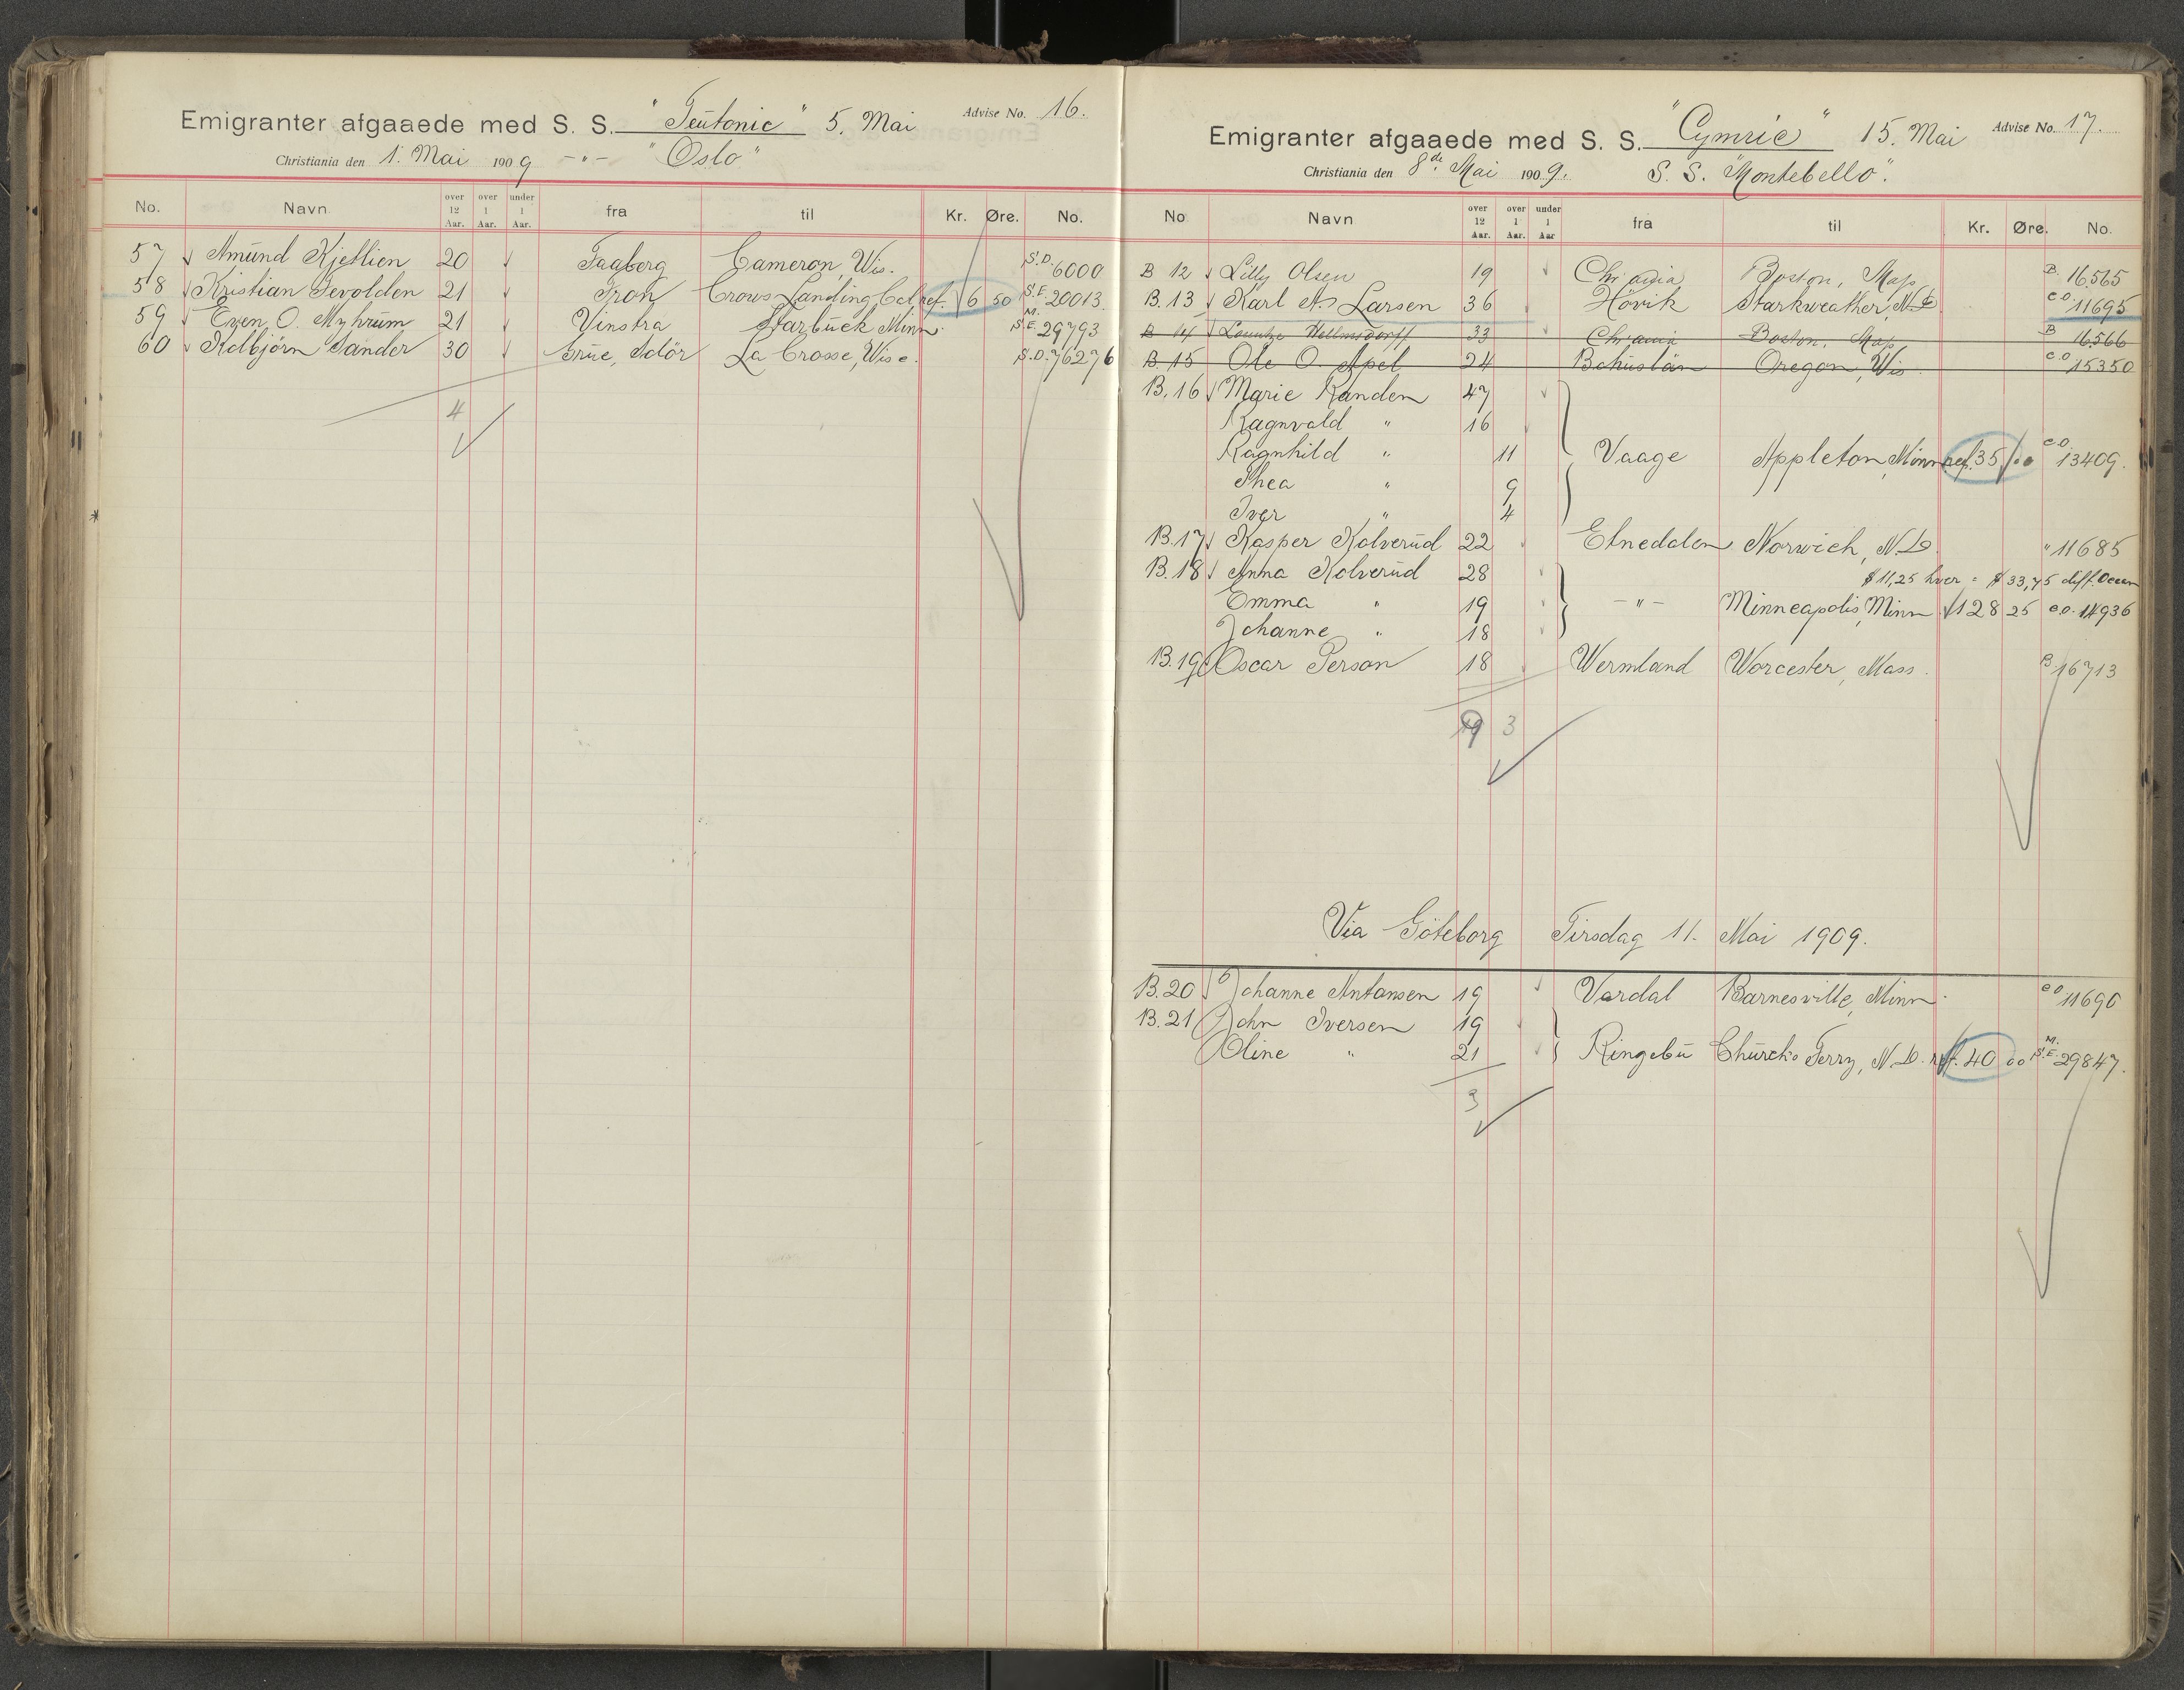 Emigranter afgaaede med S. S. "Teutonic" 5. Mai Advise No. 16.
Christiania den 1. Mai 1909 -"- "Oslo"
No. Navn over 12 Aar. over 1 Aar. under 1 Aar. fra til Kr. Øre. No.
57 Amund Kjetlien 20 Faaberg Cameron, Wis. S.D. 6000
58 Kristian Sevolden 21 Fron Crows Landing Cal ref. 6 50 S.E. 20013.
59 Even O. Myhrum 21 Vinstra Starbuck Minn. M. S.E. 29793
60 Kolbjörn Sander 30 Grue, Solör La Crosse, Wisc. S.D. 76276
4
Emigranter afgaaede med S. S. "Cymric" 15. Mai Advise No. 17.
Christiania den 8de Mai 1909. S. S. "Montebello".
No Navn over 12 Aar. over 1 Aar. under 1 Aar fra til Kr. Øre. No.
B 12 Lilly Olsen 19 Chr ania Boston, Mass B. 16565
B. 13 Karl A. Larsen 36 Hövik Starkweather, N.D. C.O. 11695
B 14 33 Chr ania Boston, Mass B 16566
B. 15 Ole O. Apel 24 Bohuslän Oregon, Wis. C.O 15350
B. 16 Marie Randen 47
Ragnvald " 16
Ragnhild " 11 Vaage Appleton, Minn ref. 35 00 C.O. 13409.
Thea " 9
Iver " 4
B. 17 Kasper Kolverud 22 Etnedalen Norwich, N.D. " 11685
B. 18 Anna Kolverud 28 $ 11,25 hver = $ 33,75 diff. Ocean
Emma " 19 -"- Minneapolis, Minn 128 25 C.O. 14936
Johanne " 18
B. 19 Oscar Person 18 Wermland Worcester, Mass. B. 16713
9 3
Via Göteborg Tirsdag 11. Mai 1909.
B. 20 Johanne Antonsen 19 Vardal Barnesville, Minn. C.O 11690
B. 21 John Iversen 19
Oline " 21 Ringebu Churchs Ferry, N.D. ref. 40 00 M. S.E. 29847.
3